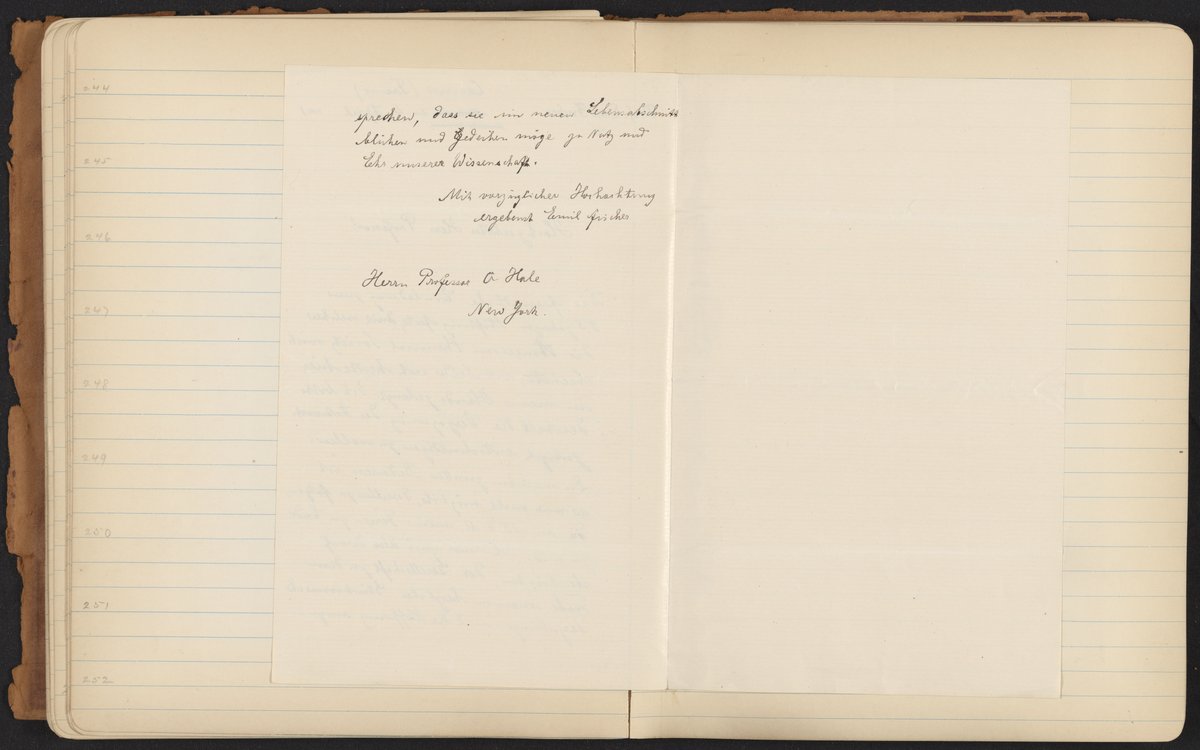 244
sprechen, dass sie im neuen Lebensabschnitt
245
blühen und Gedeihen möge zu Nutz und
Ehr unserer Wissenschaft.
Mit vorzüglicher Hochachtung
ergebenst Emil Fischer
246
Herrn Professor A Hale
247
New York.
248
249
250
251
252